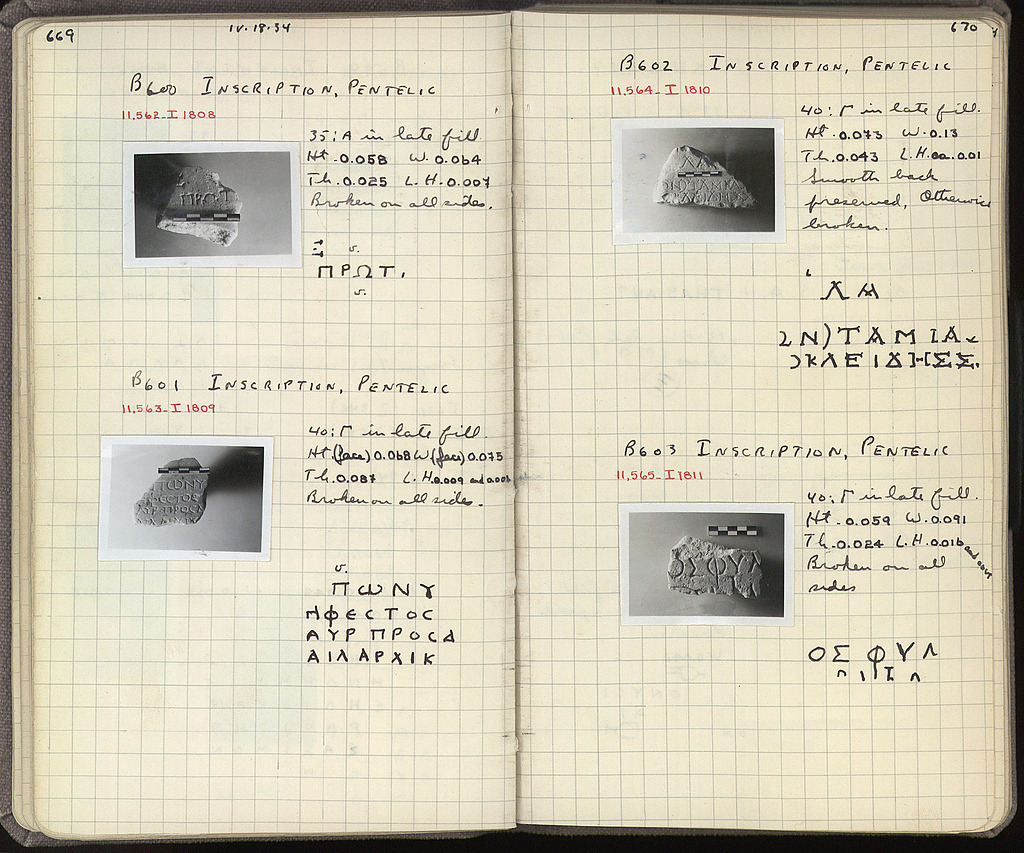 669
IV-18-34
B600 INSCRIPTION, PENTELIC
11,562-I 1808
35:A in late fill
Ht. 0.058 W. 0.064
Th. 0.025 L.H. 0.007
Broken on all sides.
v.
ΠΡΩΤ
v.
B601 INSCRIPTION, PENTELIC
11,563-I 1809
40:Γ in late fill.
Ht (face) 0.068 W (face) 0.075
Th. 0.087 L.H. 0.009 and
Broken on all sides.
v.
ΠωΝΥ
ΗΦΕCΤΟC
ΑΥΡ ΠΡΟCΔ
ΑΙΛΑΡΧΙΚ
670
B602 INSCRIPTION, PENTELIC
11,564-I 1810
40:Γ in late fill.
Ht. 0.073 W. 0.13
Th. 0.043 L.H. ca. 0.01
Smooth back
preserved, Otherwise
broken.
ΛΑ
Ν)ΤΑΜΙΑ
ΚΛΕΙΔΗΣΣ
B603 INSCRIPTION, PENTELIC
11,565-I 1811
40:Γ in late fill.
Ht. 0.059 W. 0.091
Th. 0.024 L.H. 0.016 and
Broken on all
sides
ΟΣ ΦΥΛ